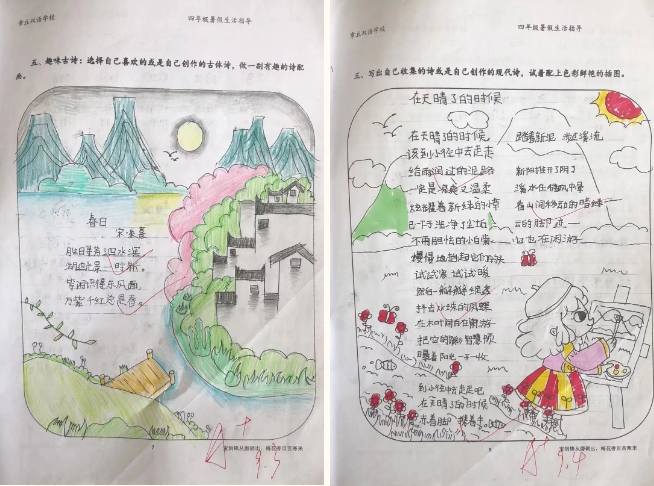 章丘双语学校
四年级暑假生活指导
五、趣味古诗：选择自己喜欢的或是自己创作的古体诗，做一副有趣的诗配
画。
春日
宋 朱熹
胜日寻芳泗水滨，
无边光景一时新。
等闲识得东风面，
万紫千红总是春。
7
宝剑锋从磨砺出，梅花香自苦寒来
章丘双语学校
四年级暑假生活指导
三、写出自己收集的诗或是自己创作的现代诗，试着配上色彩鲜艳的插图。
在天晴了的时候
在天晴了的时候
该到小径中去走走
给雨润过的泥路
一定是凉爽又温柔
炫耀着新绿的小草
已一下子洗净了尘垢
不再胆怯的小白菊
慢慢地抬起它们的头
试试寒 试试暖
抖去水珠的凤蝶
在木叶间自在闲游
把它的
曝着阳光一开一收
到小径中去走走吧
在天晴了的时候
赤着脚 携着手
踏着新泥 涉过溪流
新阳推开了阴
溪水在
看山间移动的暗绿
云的脚迹
它也在闲游
宝剑锋从磨砺出，梅花香自苦寒来